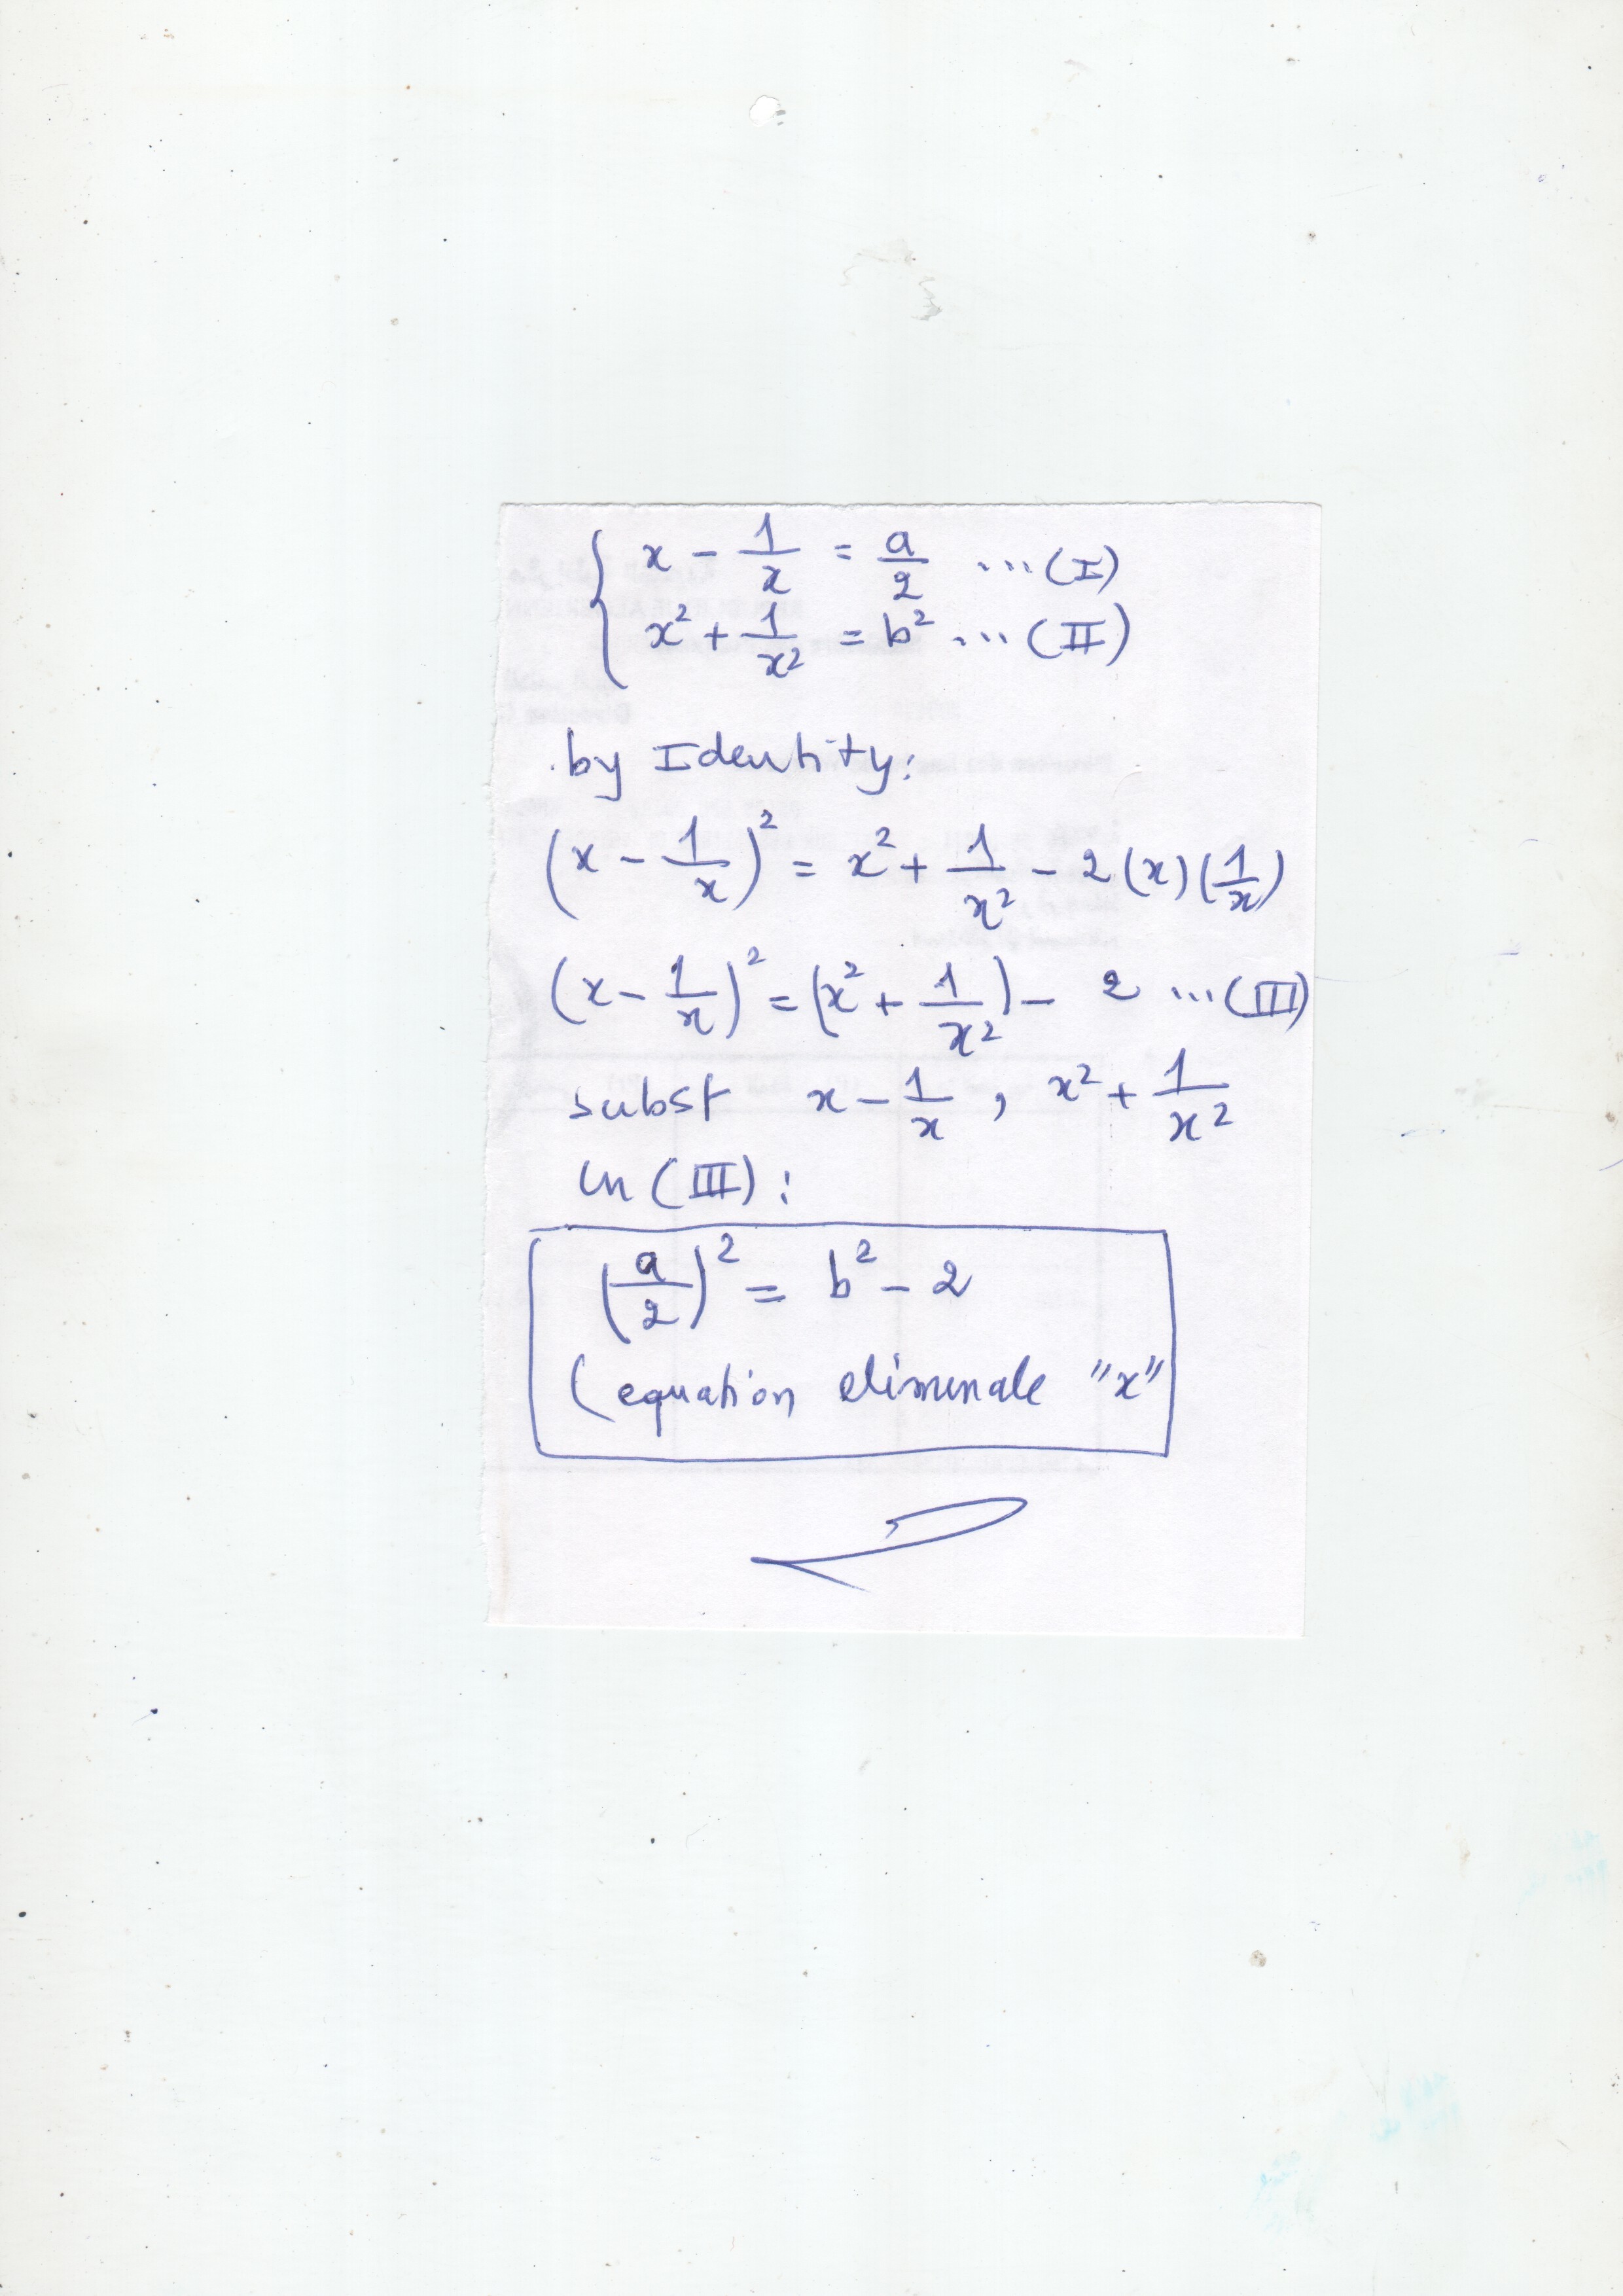 x - 1/x = a/2 ...(I)
x² + 1/x² = b² ...(II)
by Identity:
(x - 1/x)² = x² + 1/x² - 2(x)(1/x)
(x - 1/x)² = (x² + 1/x²) - 2 ...(III)
subst x - 1/x , x² + 1/x²
in (III):
(a/2)² = b² - 2
(equation eliminale "x"